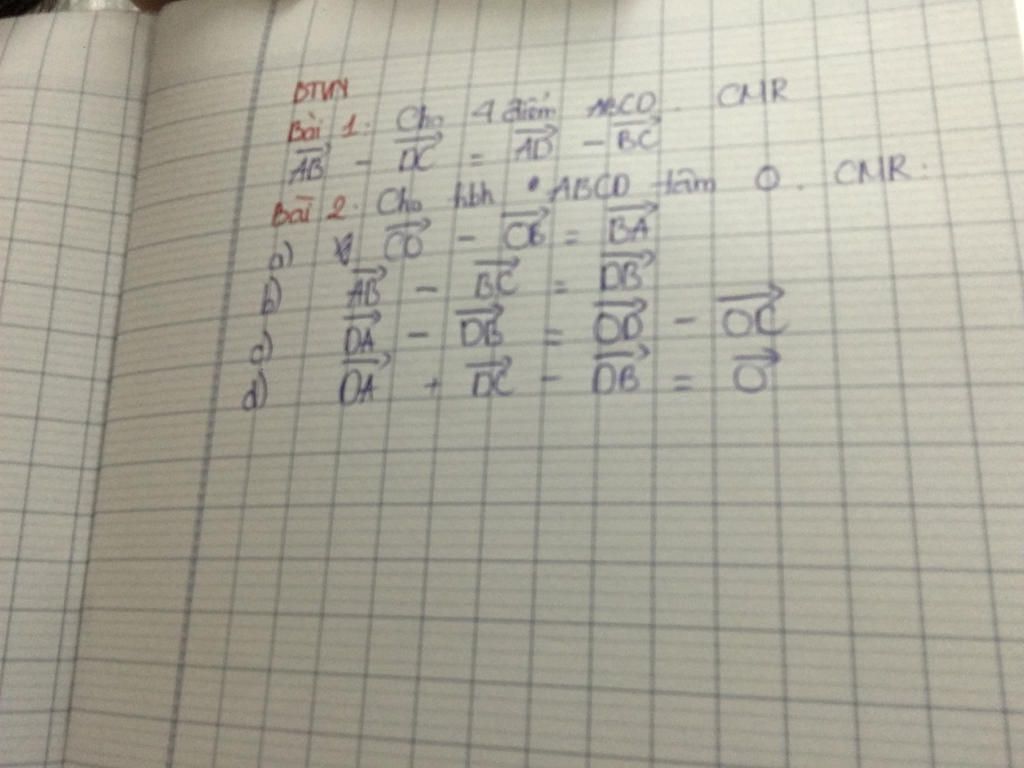 BTVN
Bài 1: Cho 4 điểm ABCD. CMR
$\overrightarrow{AB} - \overrightarrow{DC} = \overrightarrow{AD} - \overrightarrow{BC}$
Bài 2. Cho hbh ABCD tâm O. CMR:
a) $\overrightarrow{CO} - \overrightarrow{OB} = \overrightarrow{BA}$
b) $\overrightarrow{AB} - \overrightarrow{BC} = \overrightarrow{DB}$
c) $\overrightarrow{DA} - \overrightarrow{DB} = \overrightarrow{OD} - \overrightarrow{OC}$
d) $\overrightarrow{DA} + \overrightarrow{DC} - \overrightarrow{DB} = \overrightarrow{O}$